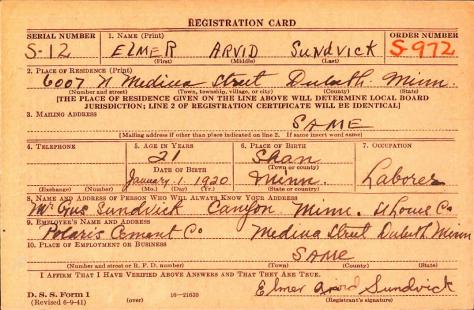 REGISTRATION CARD
SERIAL NUMBER 1. NAME (Print) ORDER NUMBER
S-12 ELMER ARVID SUNDVICK S-972
(First) (Middle) (Last)
2. PLACE OF RESIDENCE (Print)
6007 W Medina Street Duluth Minn.
(Number and street) (Town, township, village, or city) (County) (State)
[THE PLACE OF RESIDENCE GIVEN ON THE LINE ABOVE WILL DETERMINE LOCAL BOARD
JURISDICTION; LINE 2 OF REGISTRATION CERTIFICATE WILL BE IDENTICAL]
3. MAILING ADDRESS
SAME
[Mailing address if other than place indicated on line 2. If same insert word same]
4. TELEPHONE 5. AGE IN YEARS 6. PLACE OF BIRTH 7. OCCUPATION
21 Shaw
DATE OF BIRTH (Town or county)
January 1, 1920 Minn. Laborer
(Exchange) (Number) (Mo.) (Day) (Yr.) (State or country)
8. NAME AND ADDRESS OF PERSON WHO WILL ALWAYS KNOW YOUR ADDRESS
Mr Gus Sundvick Canyon Minn. St Louis Co
9. EMPLOYER'S NAME AND ADDRESS
Polaris Cement Co Medina Street Duluth Minn
10. PLACE OF EMPLOYMENT OR BUSINESS
SAME
(Number and street or R. F. D. number) (Town) (County) (State)
I AFFIRM THAT I HAVE VERIFIED ABOVE ANSWERS AND THAT THEY ARE TRUE.
D. S. S. Form 1
(Revised 6-9-41) (over) 16-21630
Elmer Arvid Sundvick
(Registrant's signature)